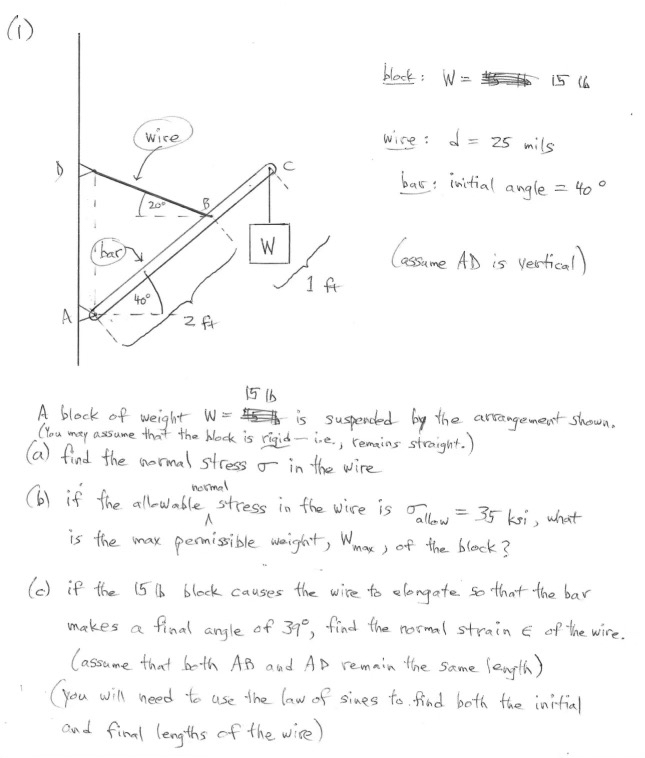 (1)
block: W = 15 lb
wire
wire: d = 25 mils
D
C
20°
B
bar: initial angle = 40°
bar
W
(assume AD is vertical)
1 ft
40°
A
2 ft
15 lb
A block of weight W = is suspended by the arrangement shown.
(You may assume that the block is rigid — i.e., remains straight.)
(a) find the normal stress σ in the wire
normal
(b) if the allowable stress in the wire is σallow = 35 ksi, what
is the max permissible weight, Wmax, of the block?
(c) if the 15 lb block causes the wire to elongate so that the bar
makes a final angle of 39°, find the normal strain ε of the wire.
(assume that both AB and AD remain the same length)
(you will need to use the law of sines to find both the initial
and final lengths of the wire)